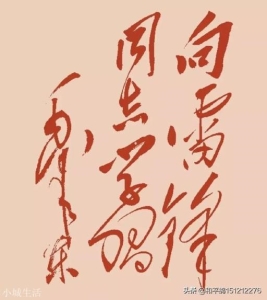 向雷锋
同志学习
毛泽东
小城生活
头条@和平鸽151212276